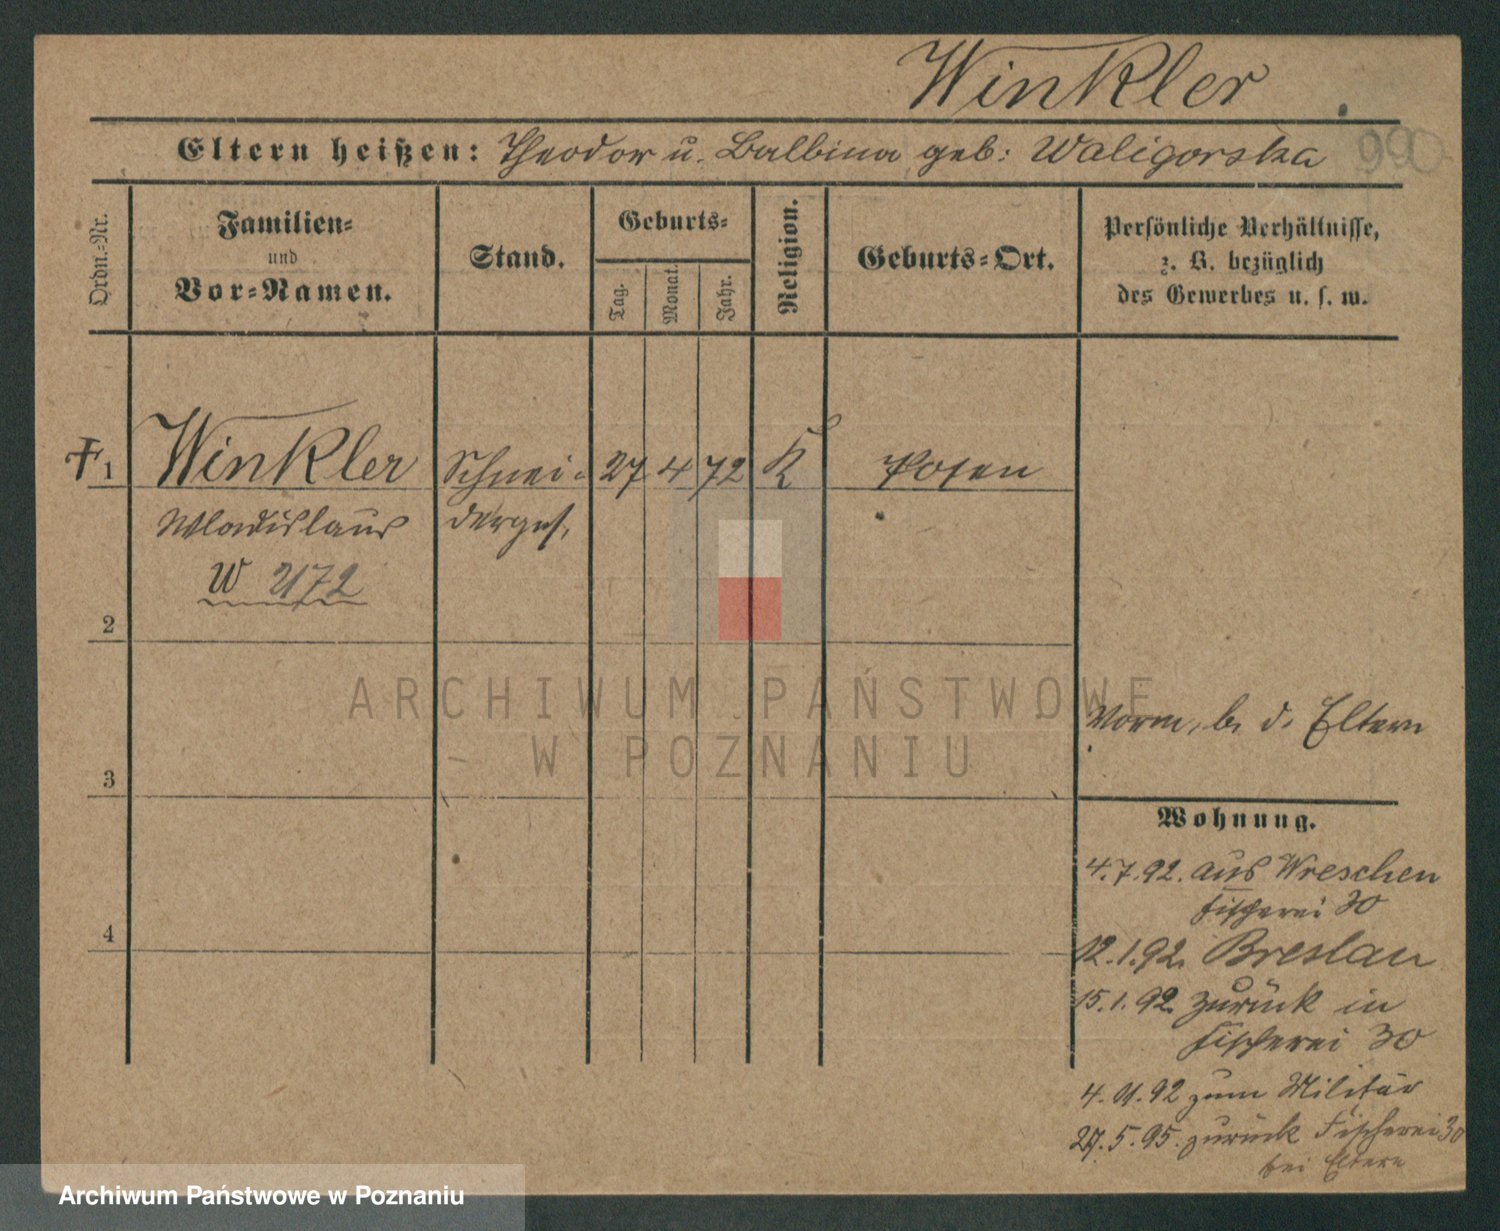 Winkler
Eltern heißen: Theodor u. Balbina geb: Waligorska
990
Ordn.-Nr.
Familien-
und
Vor-Namen.
Stand.
Geburts-
Tag.
Monat.
Jahr.
Religion.
Geburts-Ort.
Persönliche Verhältnisse,
z. B. bezüglich
des Gewerbes u. s. w.
1 Winkler Schnei- 27 4 72 K Posen
Wladislaus derges.
W 2172
2
ARCHIWUM PAŃSTWOWE
W POZNANIU
Vorm. b. d. Eltern
3
Wohnung.
4.7.92. aus Wreschen
Fischerei 30
4
12.1.92. Breslau
15.1.92. zurück in
Fischerei 30
4.11.92 zum Militär
27.5.95. zurück Fischerei 30
bei Eltern
Archiwum Państwowe w Poznaniu